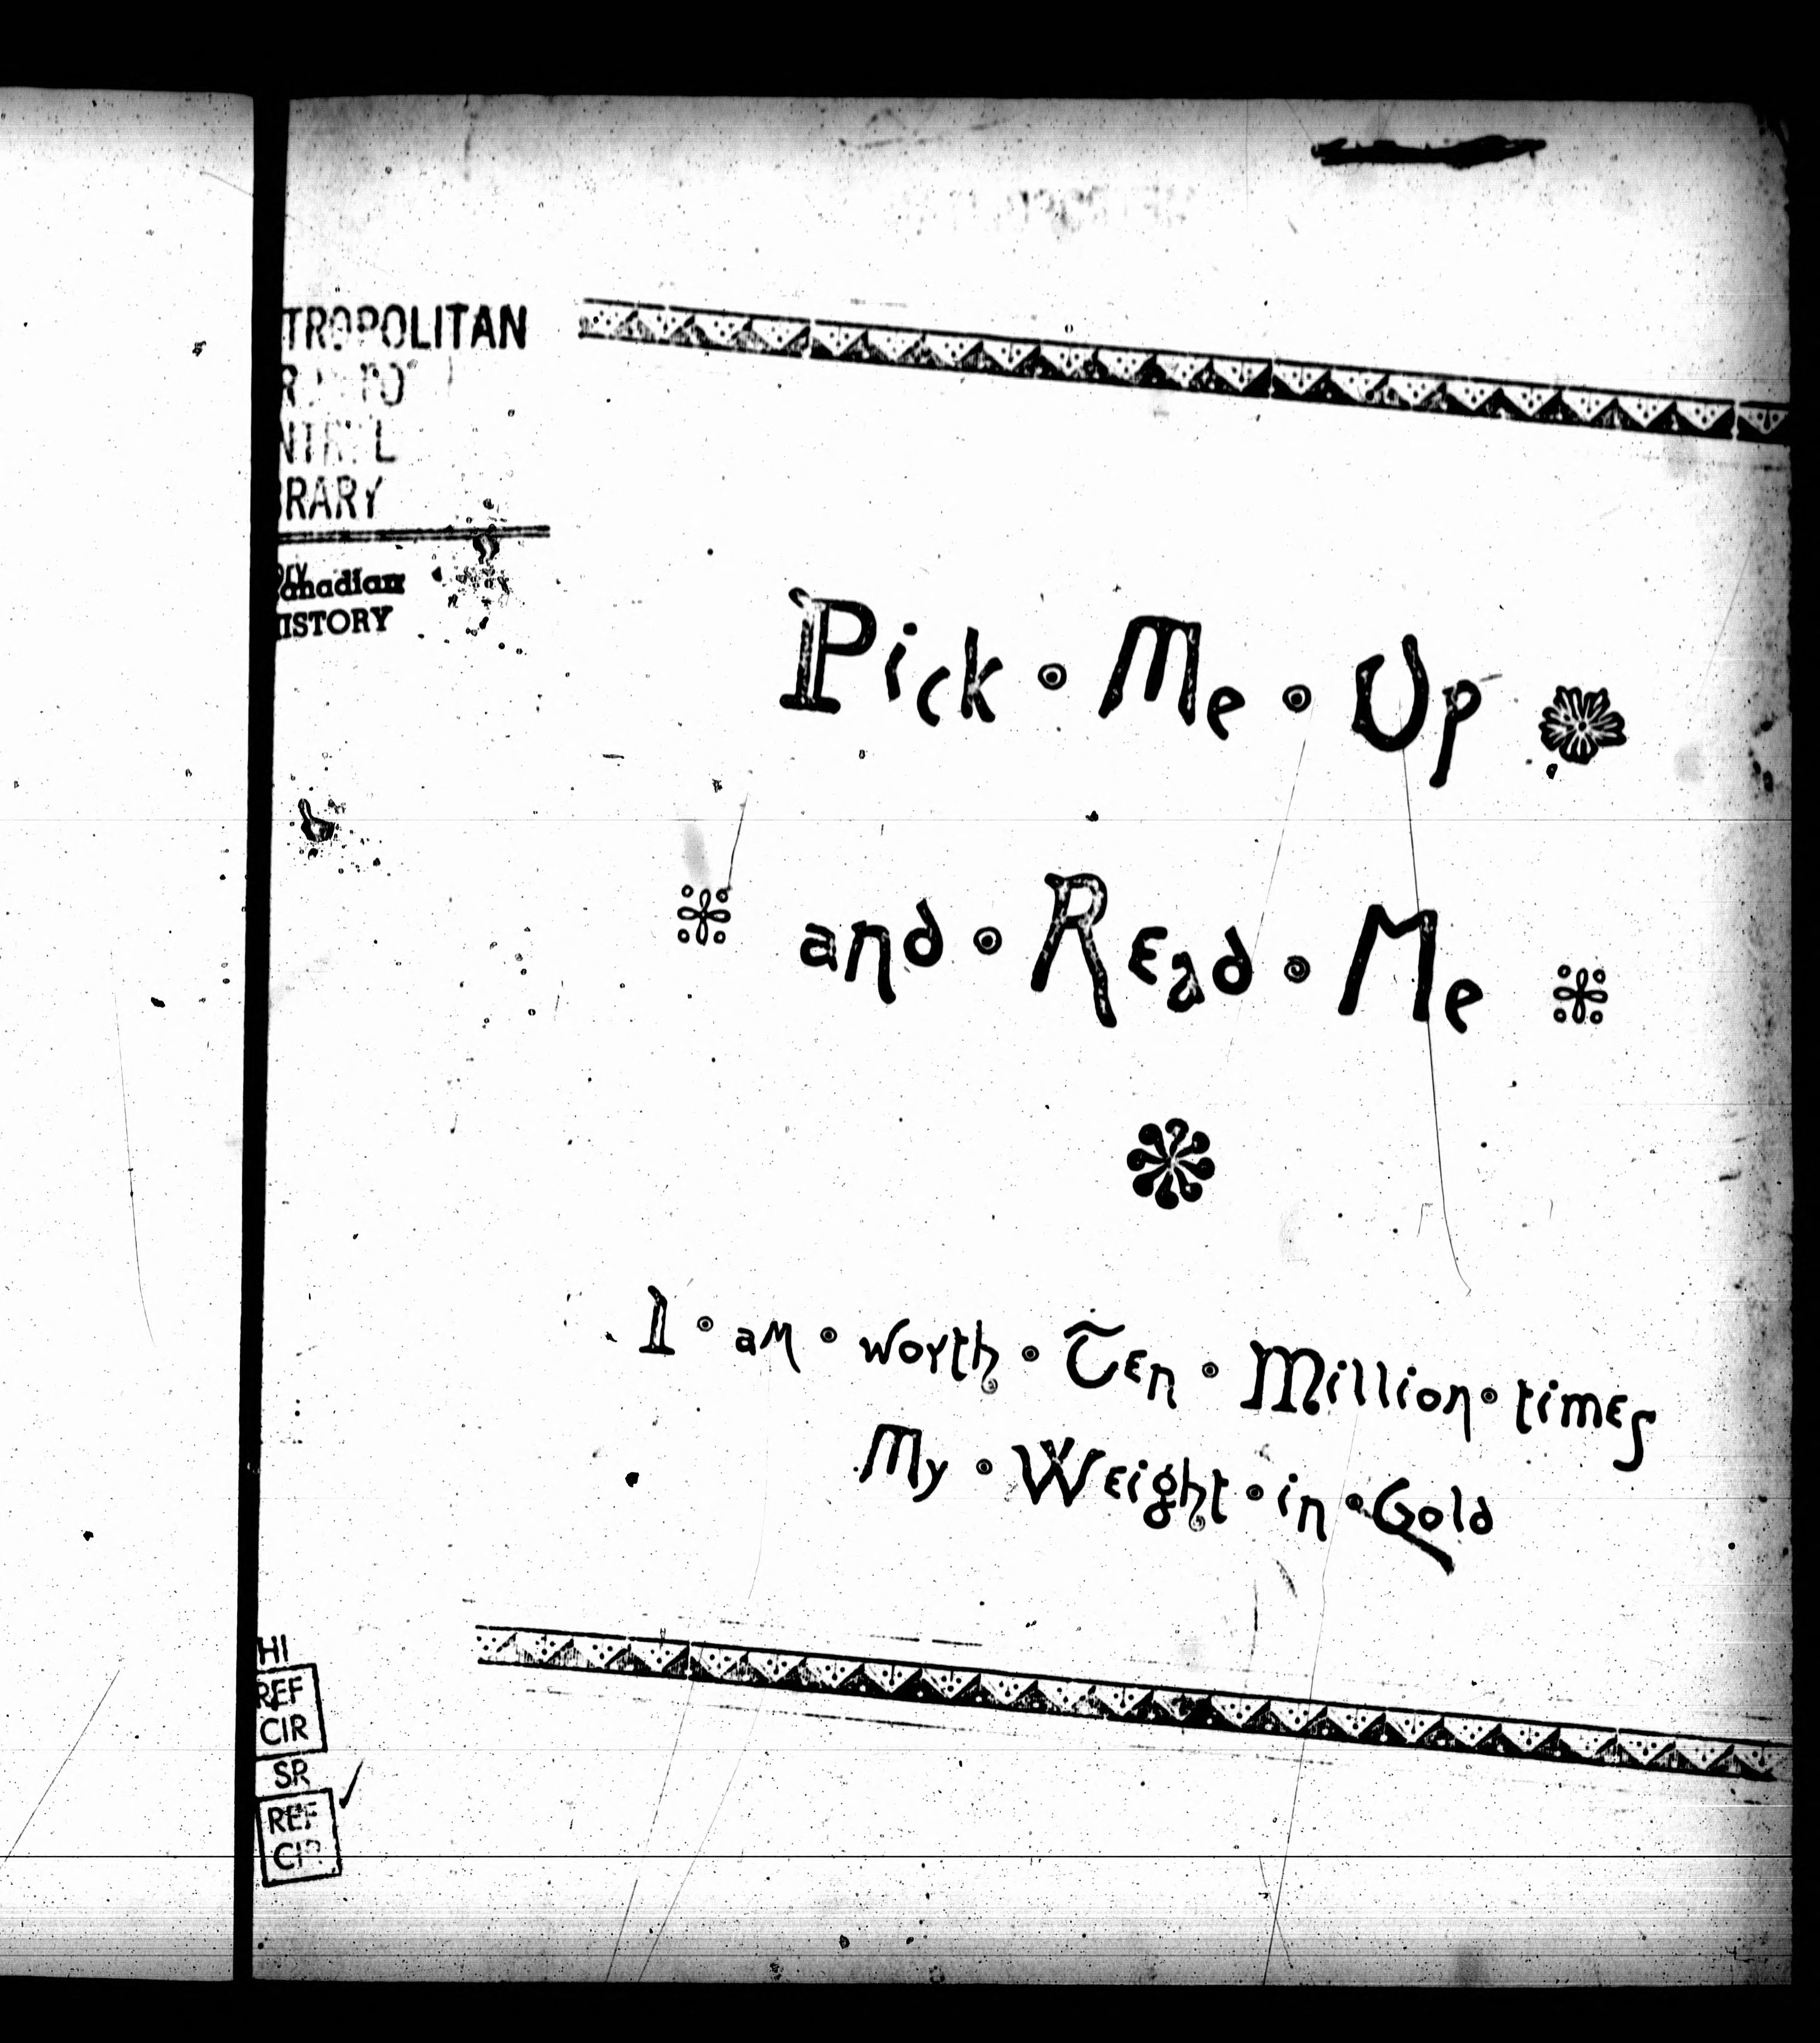 TROPOLITAN
RARY
anadian
ISTORY
Pick Me Up
and Read Me
I am worth Ten Million times
My Weight in Gold
HI
REF
CIR
SR
REF
CIR